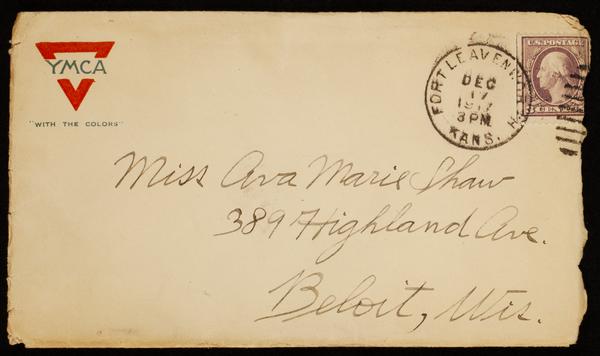 YMCA
"WITH THE COLORS"
FORT LEAVENWORTH
DEC
17
1917
3 PM
KANS.
U.S. POSTAGE
Miss Ava Marie Shaw
389 Highland Ave.
Beloit, Wis.